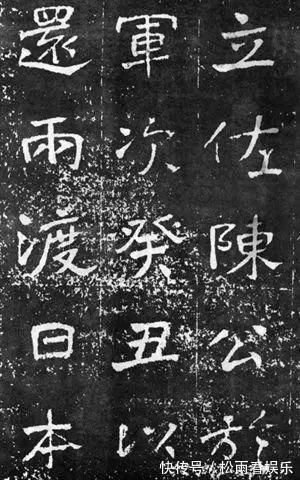 立佐陳公於
軍次癸丑以
還兩渡日本
快传号/松雨春娱乐